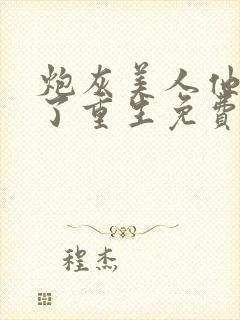 炮灰美人他
了重生免费
程杰